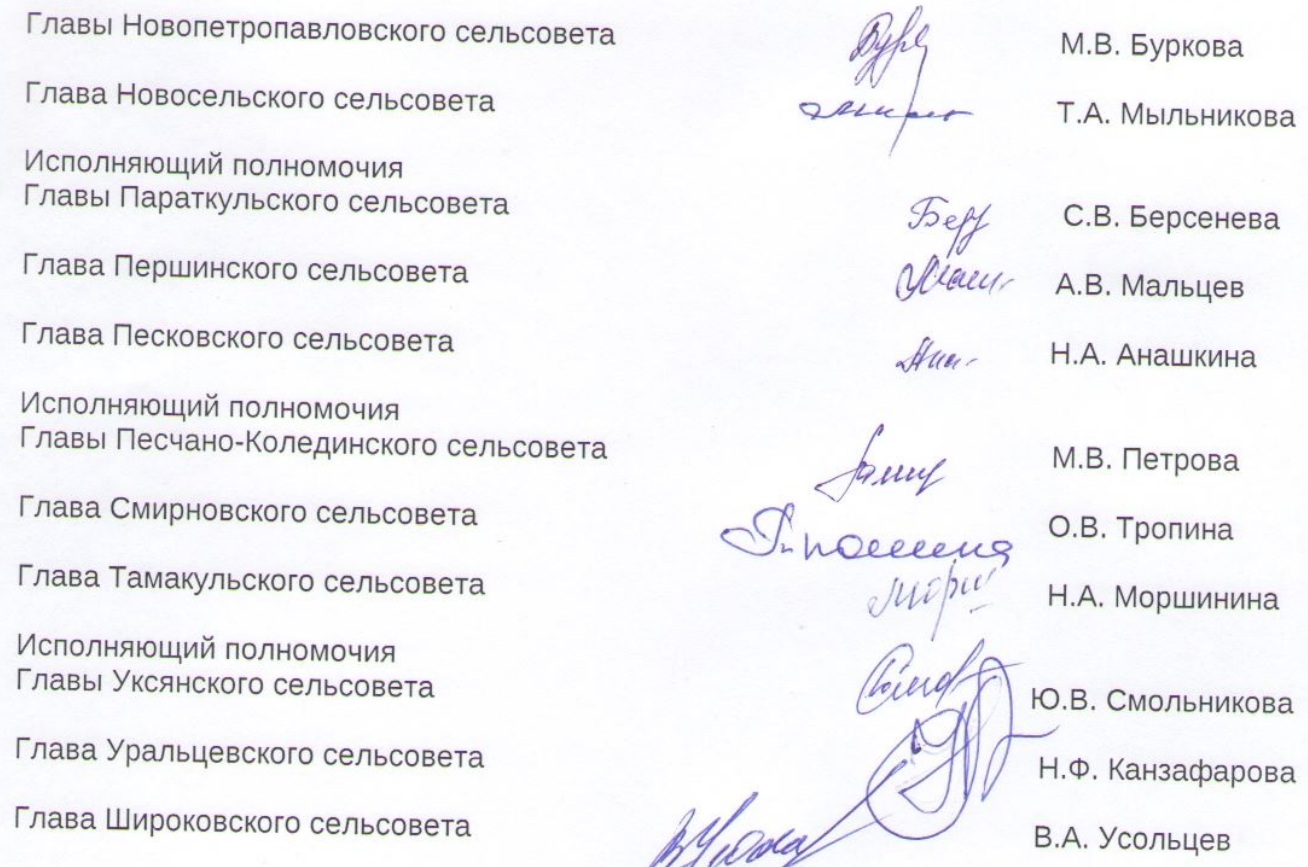 Главы Новопетропавловского сельсовета М.В. Буркова
Глава Новосельского сельсовета Т.А. Мыльникова
Исполняющий полномочия
Главы Параткульского сельсовета С.В. Берсенева
Глава Першинского сельсовета А.В. Мальцев
Глава Песковского сельсовета Н.А. Анашкина
Исполняющий полномочия
Главы Песчано-Колединского сельсовета М.В. Петрова
Глава Смирновского сельсовета О.В. Тропина
Глава Тамакульского сельсовета Н.А. Моршинина
Исполняющий полномочия
Главы Уксянского сельсовета Ю.В. Смольникова
Глава Уральцевского сельсовета Н.Ф. Канзафарова
Глава Широковского сельсовета В.А. Усольцев